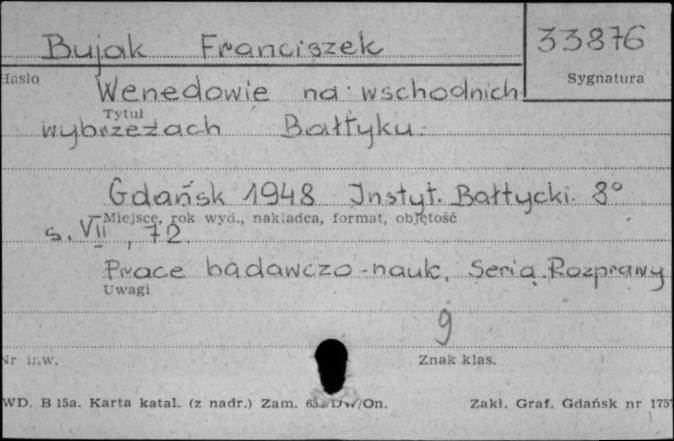 Bujak Franciszek 33876
Hasło Sygnatura
Wenedowie na wschodnich
Tytuł
wybrzeżach Bałtyku.
Gdańsk 1948 Instyt. Bałtycki. 8°
Miejsce, rok wyd., nakładca, format, objętość
s. VII, 72.
Prace badawczo-nauk. Seria. Rozprawy
Uwagi
9
Nr inw. Znak klas.
WD. B 15a. Karta katal. (z nadr.) Zam. /On. Zakł. Graf. Gdańsk nr 175